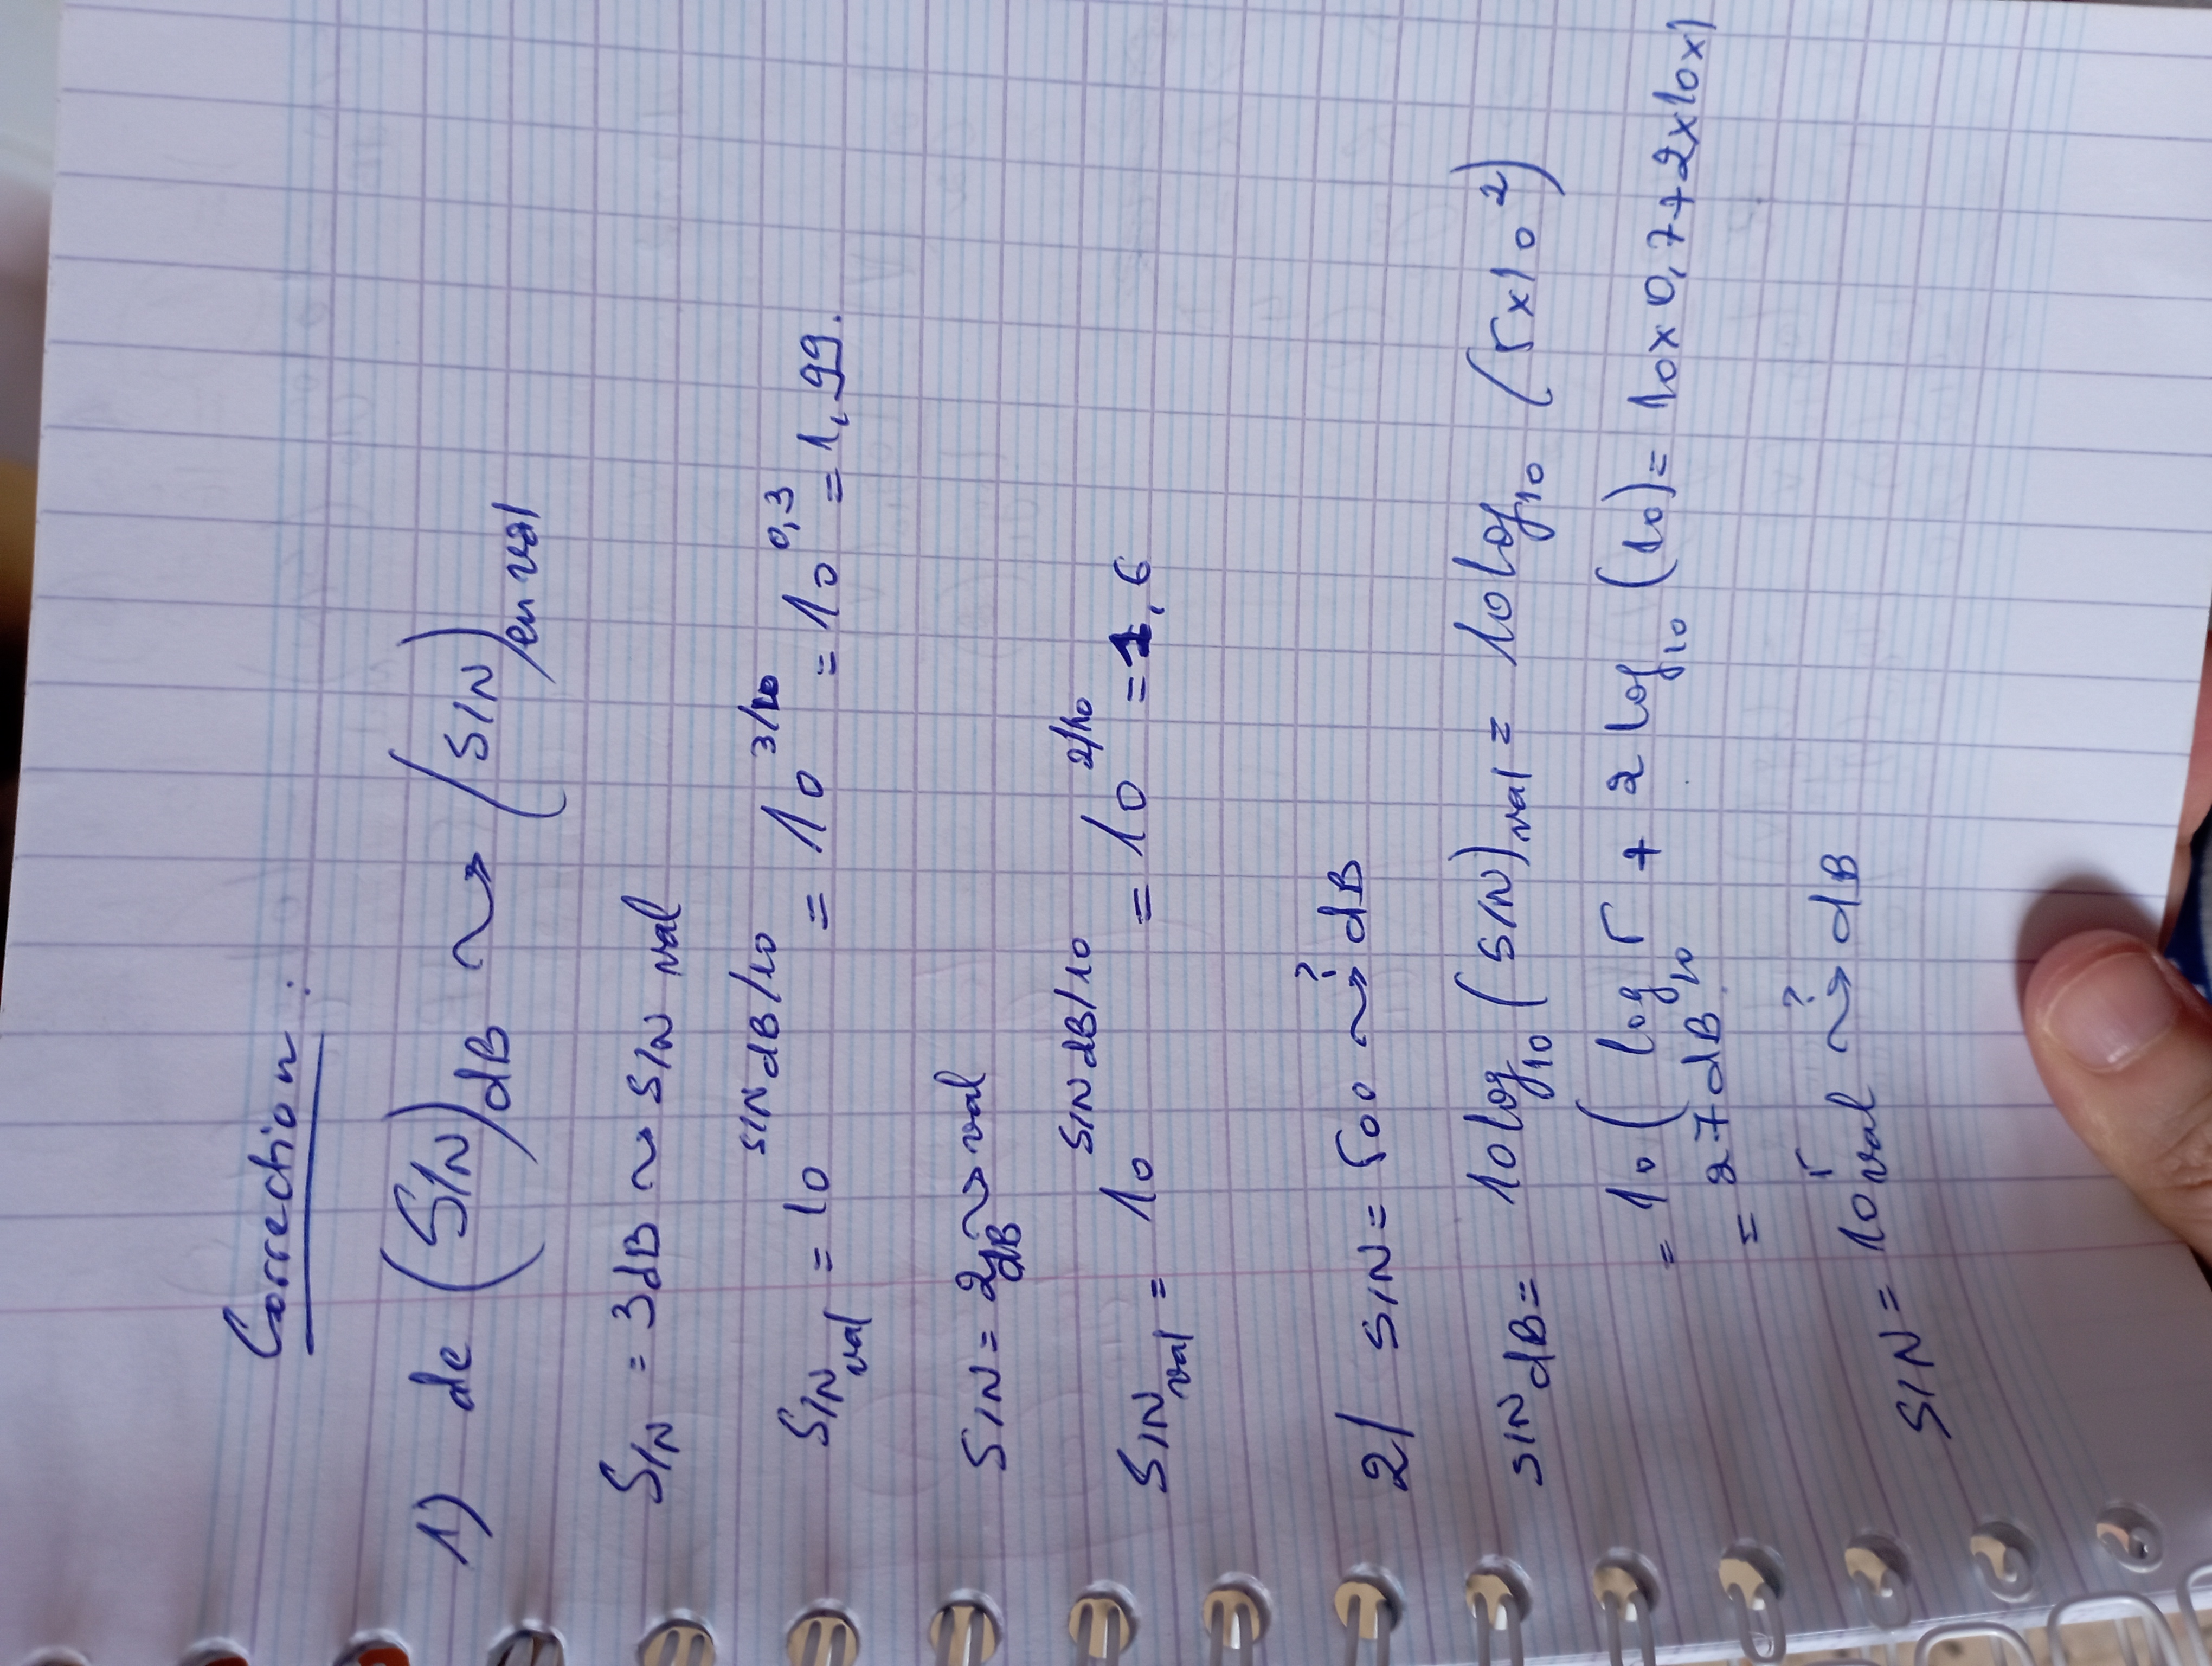 Correction :
1) de (S/N)dB ⇝ (S/N)en val
S/N = 3dB ⇝ S/N val
S/N val = 10^S/N dB/10 = 10^3/10 = 10^0,3 = 1,99.
S/N = 2dB ⇝ val
S/N val = 10^S/N dB/10 = 10^2/10 = 1,6
2/ S/N = 500 ⇝? dB
S/N dB = 10 log10 (S/N)val = 10 log10 (5x10^2)
= 10 ( log10 5 + 2 log10 (10) = 10x0,7+2x10x1
= 27 dB.
S/N = 10^5 val ⇝? dB